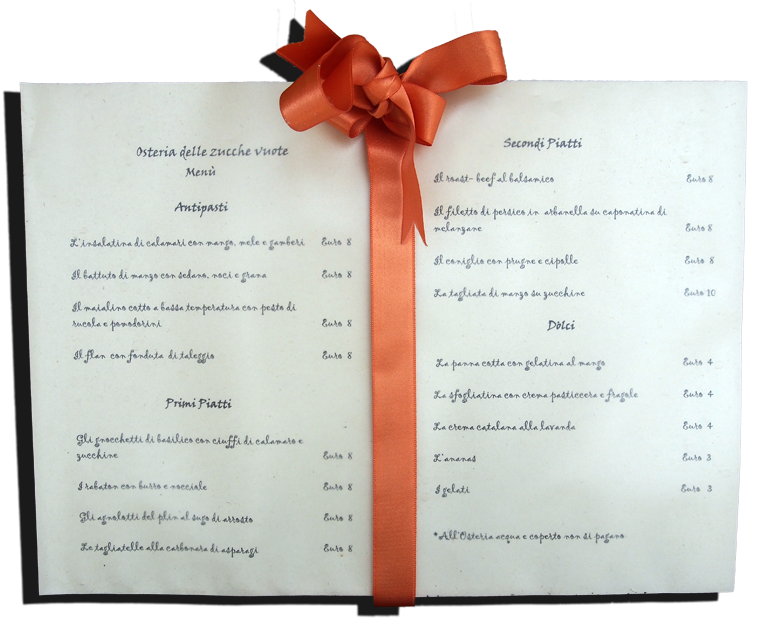 Osteria delle zucche vuote
Menù
Antipasti
L'insalatina di calamari con mango, mele e gamberi Euro 8
Il battuto di manzo con sedano, noci e grana Euro 8
Il maialino cotto a bassa temperatura con pesto di
rucola e pomodorini Euro 8
Il flan con fonduta di taleggio Euro 8
Primi Piatti
Gli gnocchetti di basilico con ciuffi di calamaro e
zucchine Euro 8
I rabaton con burro e nocciole Euro 8
Gli agnolotti del plin al sugo di arrosto Euro 8
Le tagliatelle alla carbonara di asparagi Euro 8
Secondi Piatti
Il roast- beef al balsamico Euro 8
Il filetto di persico in arbanella su caponatina di
melanzane Euro 8
Il coniglio con prugne e cipolle Euro 8
La tagliata di manzo su zucchine Euro 10
Dòlci
La panna cotta con gelatina al mango Euro 4
La sfogliatina con crema pasticcera e fragole Euro 4
La crema catalana alla lavanda Euro 4
L'ananas Euro 3
I gelati Euro 3
*All'Osteria acqua e coperto non si pagano